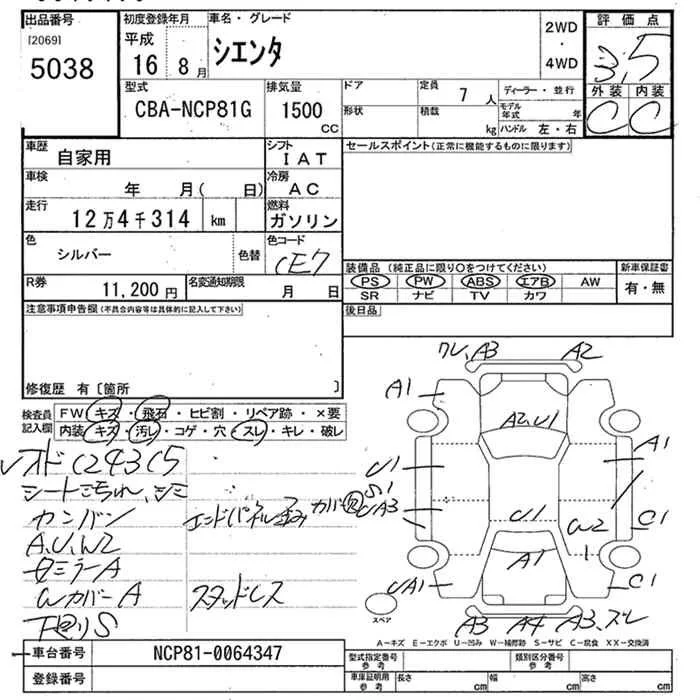 出品番号 初度登録年月 車名・グレード 2WD ・ 4WD 評価点
[2069] 平成 シエンタ 3.5
5038 16 8月 外装 内装
C C
型式 排気量 ドア 定員 7人 ディーラー・並行
CBA-NCP81G 1500 CC 形状 積載 kg モデル年式 年
ハンドル 左・右
車歴 自家用 シフト IAT セールスポイント(正常に機能するものに限ります)
車検 年 月( 日) 冷房 AC
走行 12万4千314 km 燃料 ガソリン
色 シルバー 色替 色コード 1E7
装備品 (純正品に限り○をつけてください) 新車保証書
R券 11,200円 名変通知期限 月 日
PS PW ABS エアB AW 有・無
SR ナビ TV カワ
注意事項申告欄(不具合内容等は具体的に記入して下さい) 後日品
修復歴 有〔箇所 〕
検査員記入欄 FW キズ・飛石・ヒビ割・リペア跡・×要
内装 キズ・汚レ・コゲ・穴・スレ・キレ・破レ
シートこちれ、シミ
カンバン エンドパネル歪み
A,U,W2
ミラーA
Wカバー A スタッドレス
下廻りS
ワレ、A3 A2
A1
A2,U1
U1 A1
S1
UA3 U1 W2 C1
A1
UA1 C1
A3 A4 A3、スレ
スペア
A−キズ E−エクボ U−凹み W−補修跡 S−サビ C−腐食 XX−交換済
車台番号 NCP81-0064347 型式指定番号 参考 類別区分番号 参考
登録番号 車庫証明用 参考 長さ cm 幅 cm 高さ cm